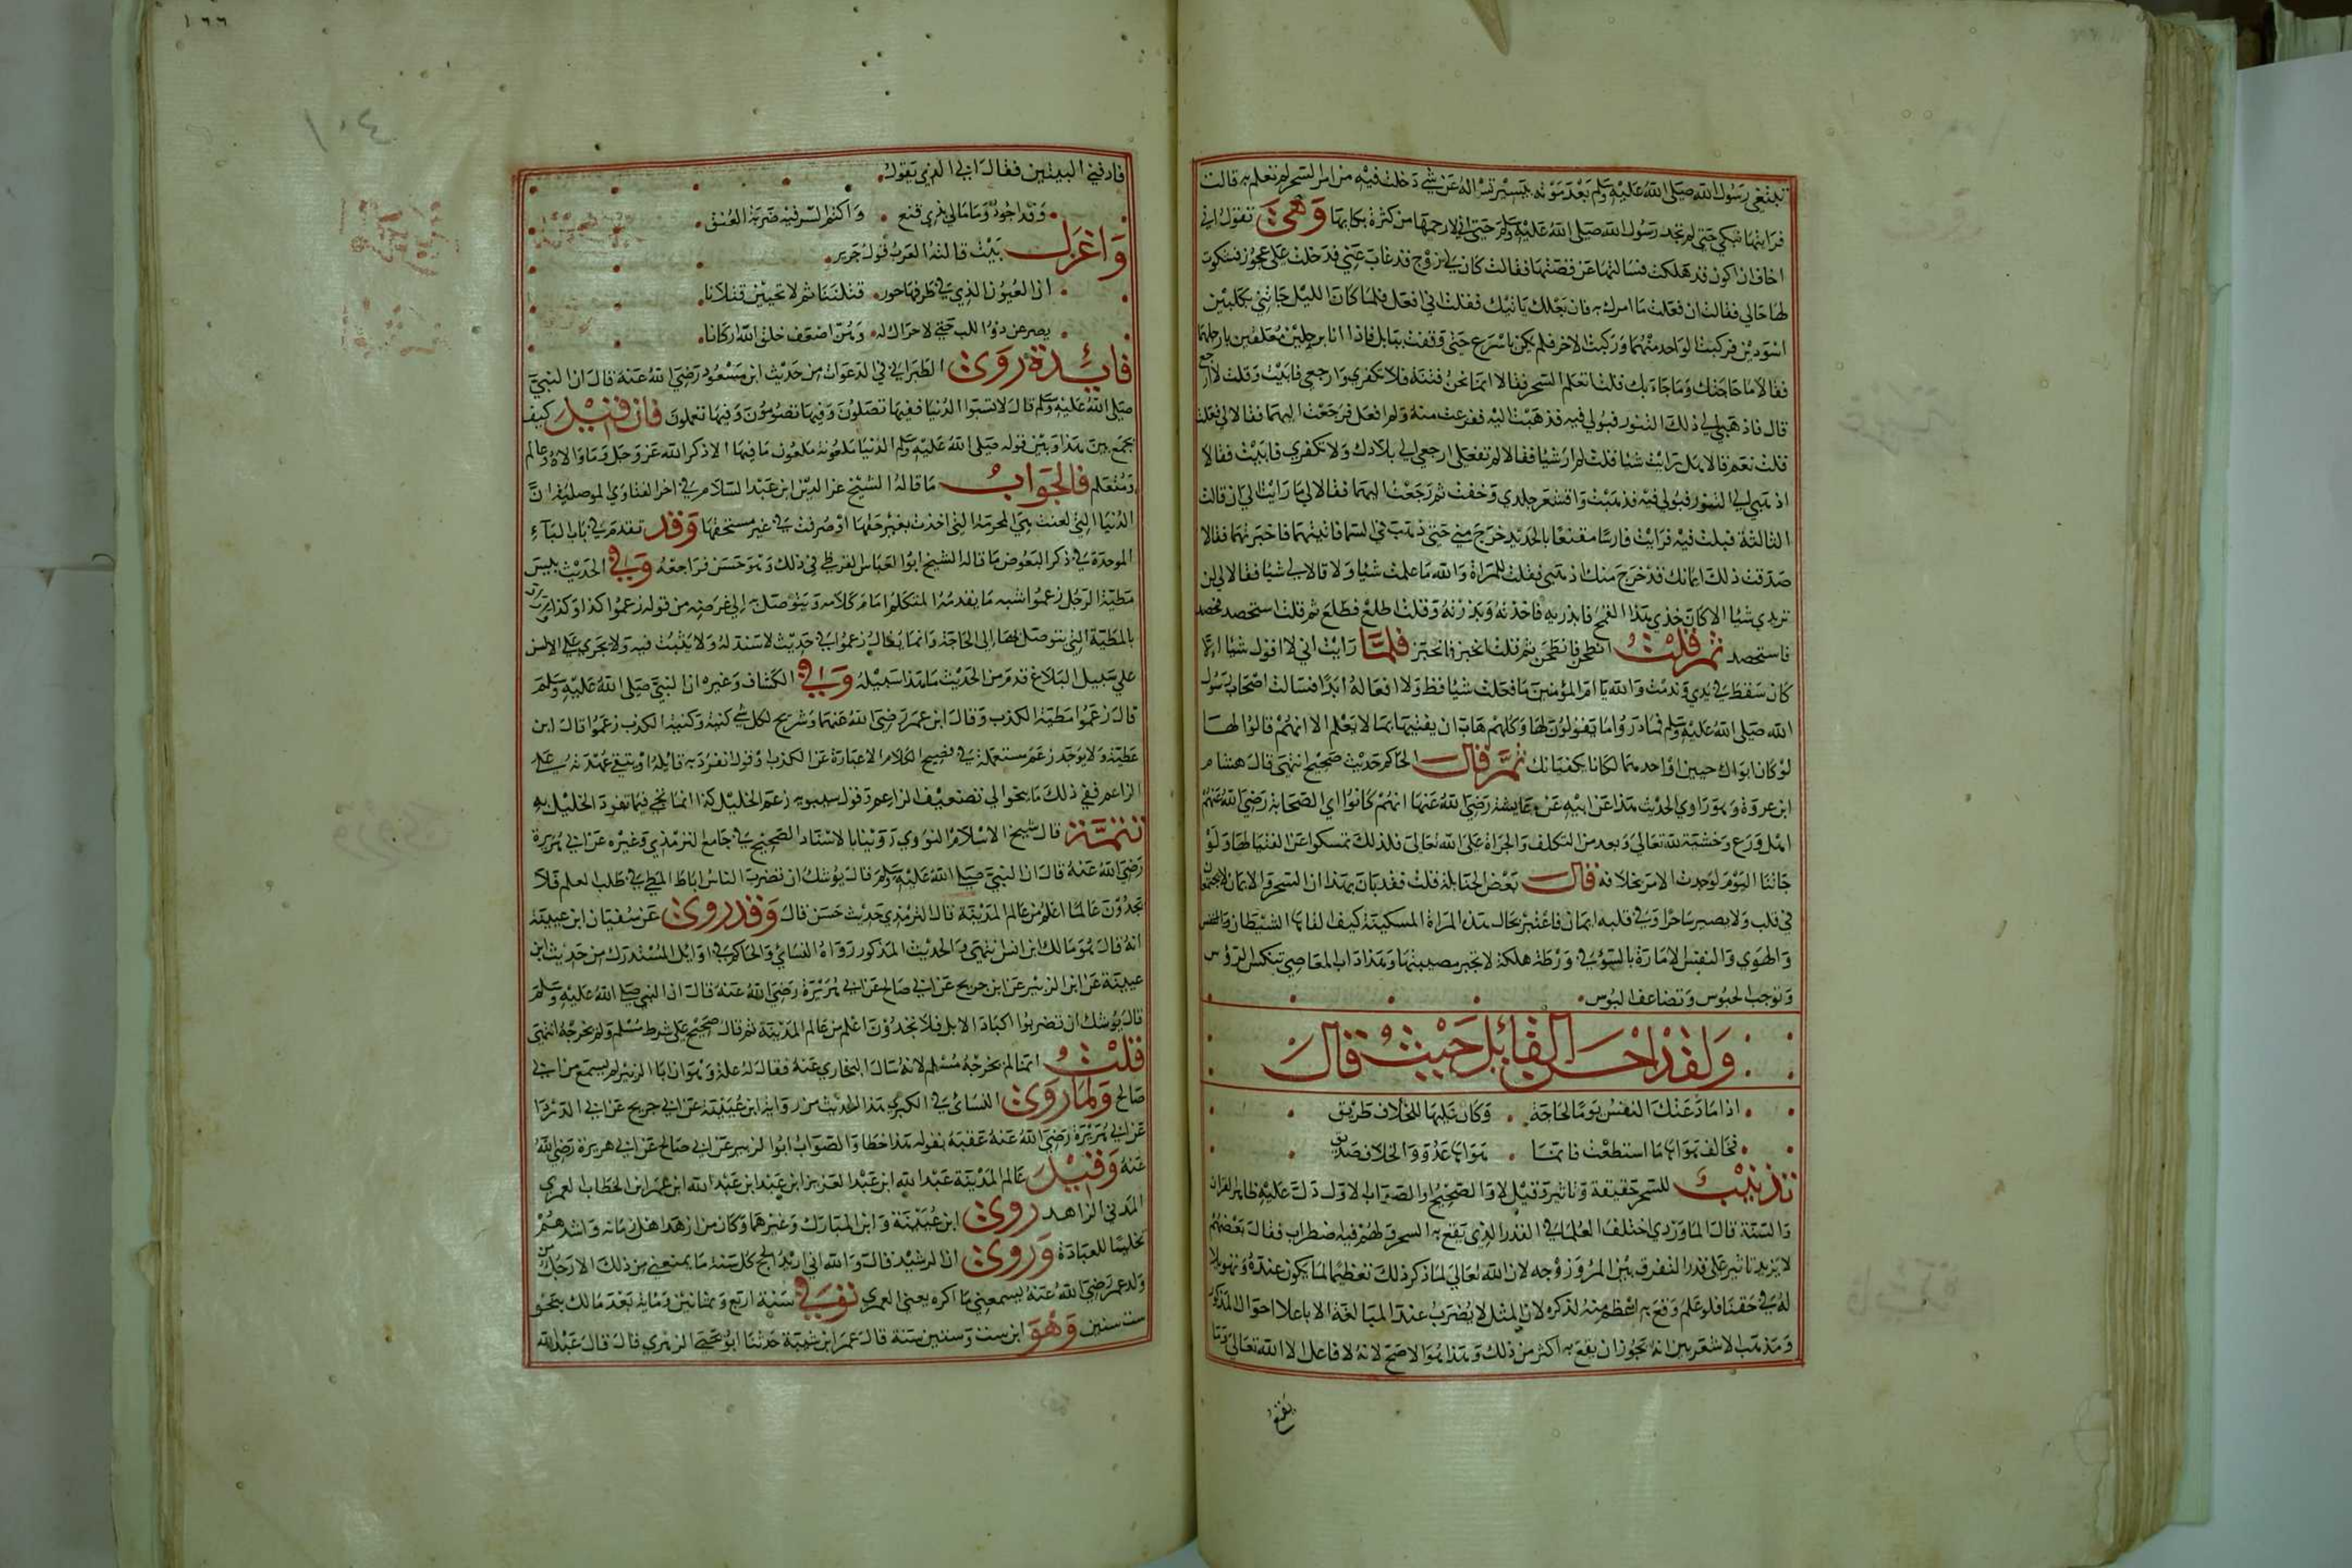 تبتغي رسول الله صلى الله عليه وسلم بعد موته بيسير تسأله عن شي دخلت فيه من امر السحر لم تعلم به قالت
فرايتها تبكي حتى لم تجد رسول الله صلى الله عليه وسلم حتى اني لارحمها من كثرة بكايها وهي تقول اني
اخاف ان اكون قد هلكت فسالتها عن قصتها فقالت كان لي زوج قد غاب عني فدخلت على عجوز فشكوت
لها حالي فقالت ان فعلت ما امرك به فان بعلك ياتيك فقلت اني افعل فلما كان الليل جاتني بكلبين
اسودين فركبت الواحد منهما وركبت الاخر فلم يكن باسرع حتى وقفت ببابل فاذا انا برجلين معلقين بارجلهما
فقالا ما حاجتك وما جاء بك قلت اتعلم السحر فقالا انما نحن فتنة فلا تكفري وارجعي فابيت وقلت لا ارجع
قال فاذهبي الى ذلك التنور فبولي فيه فذهبت اليه ففزعت منه ولم افعل فرجعت اليهما فقالا لي فعلت
قلت نعم قالا هل رايت شيا قلت لم ار شيا فقالا لم تفعلي ارجعي الى بلادك ولا تكفري فابيت فقالا
اذهبي الى التنور فبولي فيه فذهبت واقشعر جلدي وخفت ثم رجعت اليهما فقالا لي ما رايت الى ان قالت
الثالثة فبلت فيه فرايت فارسا مقنعا بالحديد خرج مني حتى ذهب في السما فاتيتهما فاخبرتهما فقالا
صدقت ذلك ايمانك قد خرج منك اذهبي فقلت للمراة والله ما علمت شيا ولا قالا لي شيا فقالا لي لن
تريدي شيا الا كان خذي هذا القمح فابذريه فاخذته وبذرته وقلت اطلع فطلع ثم قلت استحصد
فاستحصد ثم قلت انطحن فانطحن ثم قلت انخبز فانخبز فلما رايت اني لا اقول شيا الا
كان سقط في يدي وندمت والله يا ام المؤمنين ما فعلت شيا قط ولا افعاله ابدا فسالت اصحاب رسول
الله صلى الله عليه وسلم فما دروا ما يقولون لها وكلهم هاب ان يفتيها بما لا يعلم الا انهم قالوا لها
لو كان ابواك حيين او احدهما لكانا يكفيانك ثم قال الحاكم حديث صحيح انتهى قال هشام
ابن عروة وهو راوي الحديث هذا عن ابيه عن عايشة رضي الله عنها انهم كانوا اي الصحابة رضي الله عنهم
اهل ورع وخشية لله تعالى وبعد من التكلف والجراة على الله تعالى فلذلك تمسكوا عن الفتيا لها ولو
جاتنا اليوم لوجدت الامر بخلافه قال بعض الحنابلة قلت فقد بان بهذا ان السحر والايمان لا يجتمعان
في قلب ولا يصير ساحرا وفي قلبه ايمان فاعتبر بحال هذه المراة المسكينة كيف القاها الشيطان والنفس
والهوي والنفس الامارة بالسوء في ورطة هلكة لا تجبر مصيبتها وهذا داب المعاصي تنكس الرؤس
وتوجب الحبوس وتضاعف البوس
ولقد احسن القائل حيث قال
اذا ما دعتك النفس يوما لحاجة وكان عليها للخلاف طريق
فخالف هواها ما استطعت فانما هواها عدو والخلاف صديق
تذنيب للسحر حقيقة وتاثير وقيل لا والصحيح او الصواب الاول دلت عليه ظاهر القران
والسنة قال الماوردي اختلف العلما في القدر الذي يقع به السحر ولهم فيه اضطراب فقال بعضهم
لا يزيد تاثير على قدر التفرق بين المرؤ وزوجه لان الله تعالى لما ذكر ذلك تعظيما لما يكون عنده وتهويلا
له في حقنا فلو علم وقع به اعظم منه لذكره لان المثل لا يضرب عند المبالغة الا باعلا احوال المذكور
ومذهب الاشعريين انه يجوز ان يقع به اكثر من ذلك وهذا هو الاصح لانه لا فاعل الا الله تعالى وما
يقع
١٦٦
١٠٤
فارقني البيتين فقال ابي الذي يقول
وقد اجود وما مالي بذي قنع واكتم السر فيه ضربة العنق
واغزل بيت قالته العرب قول جرير
ان العيون الذي في طرفها حور قتلننا ثم لا تحيين قتلانا
يصرعن ذو اللب حتى لا حراك له وهن اضعف خلق الله اركانا
فائدة روى الطبراني في الدعوات من حديث ابن مسعود رضي الله عنه قال ان النبي
صلى الله عليه وسلم قال لا تسبوا الدنيا ففيها تصلون وفيها تصومون وفيها تعملون فان قيل كيف
يجمع بين هذا وبين قوله صلى الله عليه وسلم الدنيا ملعونة ملعون ما فيها الا ذكر الله عز وجل وما والاه وعالم
ومتعلم فالجواب ما قاله الشيخ عز الدين ابن عبد السلام في اخر الفتاوي الموصلية ان
الدنيا التي لعنت هي المحرمة التي اخذت بغير حقها او صرفت في غير مستحقها وقد تقدم في باب الباء
الموحدة في ذكر البعوض ما قاله الشيخ ابوا العباس القرطبي في ذلك وهو حسن فراجعه وفي الحديث بيس
مطية الرجل زعموا شبه ما يقدمه المتكلم امام كلامه ويتوصل به الى غرضه من قوله زعموا كذا وكذا
بالمطية التي يتوصل بها الى الحاجة وانما يقال زعموا في حديث لا سند له ولا يثبت فيه ولا يجري على الالسن
على سبيل البلاغ فذم من الحديث ما هذا سبيله وفي الكشاف وغيره ان النبي صلى الله عليه وسلم
قال زعموا مطية الكذب وقال ابن عمر رضي الله عنهما وشريح لكل شي كنية وكنية الكذب زعموا قال ابن
عطية ولا يوجد زعم مستعملة في فصيح الكلام الا عبارة عن الكذب او قول انفرد به قائله او تبقي عهدته على
الزاعم ففي ذلك ما ينحوا الى تضعيف الزاعم وقول سيبويه زعم الخليل كذا انما يجي فيما تفرد الخليل به
تتمة قال شيخ الاسلام النووي روينا بالاسناد الصحيح في جامع الترمذي وغيره عن ابي هريرة
رضي الله عنه قال ان النبي صلى الله عليه وسلم قال يوشك ان تضرب الناس اباط المطي في طلب العلم فلا
تجدون عالما اعلم من عالم المدينة قال الترمذي حديث حسن قال وقد روي عن سفيان ابن عيينة
انه قال هو مالك ابن انس انتهى والحديث المذكور رواه النسائي والحاكم في اوائل المستدرك من حديث ابن
عيينة عن ابن الزبير عن ابن جريج عن ابي صالح عن ابي هريرة رضي الله عنه قال ان النبي صلى الله عليه وسلم
قال يوشك ان تضربوا اكباد الابل فلا تجدون اعلم من عالم المدينة ثم قال صحيح على شرط مسلم ولم يخرجه انتهى
قلت انما لم يخرجه مسلم لانه سال البخاري عنه فقال له علة وهو ان ابا الزبير لم يسمع من ابي
صالح ولما روى النسائي في الكبرى هذا الحديث من رواية ابن عيينة عن ابي جريج عن ابي الدردا
عن ابي هريرة رضي الله عنه عقبه بقوله هذا خطا والصواب ابوا الزبير عن ابي صالح عن ابي هريرة رضي الله
عنه وقيل عالم المدينة عبد الله ابن عبد العزيز ابن عبد ابن عبد الله ابن عمر ابن الخطاب العمري
المدني الزاهد روى ابن عيينة وابن المبارك وغيرهما وكان من ازهد اهل زمانه واشدهم
تخليا للعبادة وروى ان الرشيد قال والله اني اريد الحج كل سنة ما يمنعني من ذلك الا رجل من
ولد عمر رضي الله عنه يسمعني ما اكره يعني العمري توفي سنة اربع وثمانين وماية بعد مالك بنحو
ست سنين وهو ابن ست وستين سنة قال عمر ابن شبة حدثنا ابو يحيى الزهري قال قال عبد الله